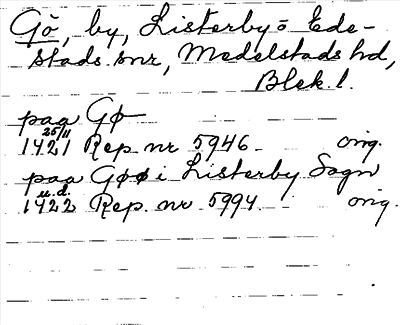 Gö, by, Listerby o Ede-
stads snr, Medelstads hd,
Blek. l.
paa Gø
25/11
1421 Rep. nr 5946. orig.
paa Gøø i Listerby Sogn
u.d.
1422 Rep. nr 5994. orig.